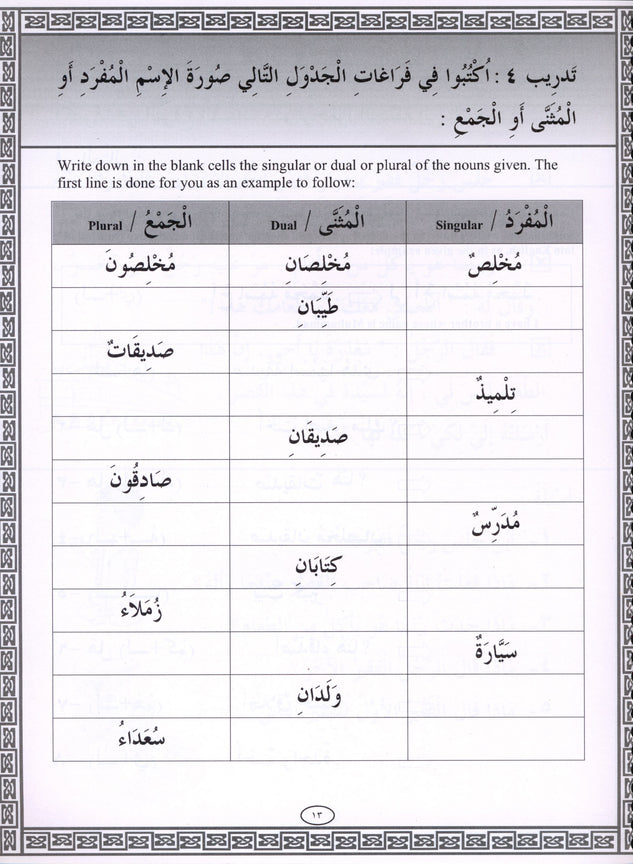 تَدرِيب ٤ : اُكْتُبُوا فِي فَرَاغَاتِ الْجَدْوَلِ التَّالِي صُورَةَ الإِسْمِ الْمُفْرَدِ أَوِ
الْمُثَنَّى أَوِ الْجَمْعِ :
Write down in the blank cells the singular or dual or plural of the nouns given. The
first line is done for you as an example to follow:
الْمُفْرَدُ / Singular الْمُثَنَّى / Dual الْجَمْعُ / Plural
مُخْلِصٌ مُخْلِصَانِ مُخْلِصُونَ
طَيِّبَانِ
صَدِيقَاتٌ
تِلْمِيذٌ
صَدِيقَانِ
صَادِقُونَ
مُدَرِّسٌ
كِتَابَانِ
زُمَلَاءُ
سَيَّارَةٌ
وَلَدَانِ
سُعَدَاءُ
١٣